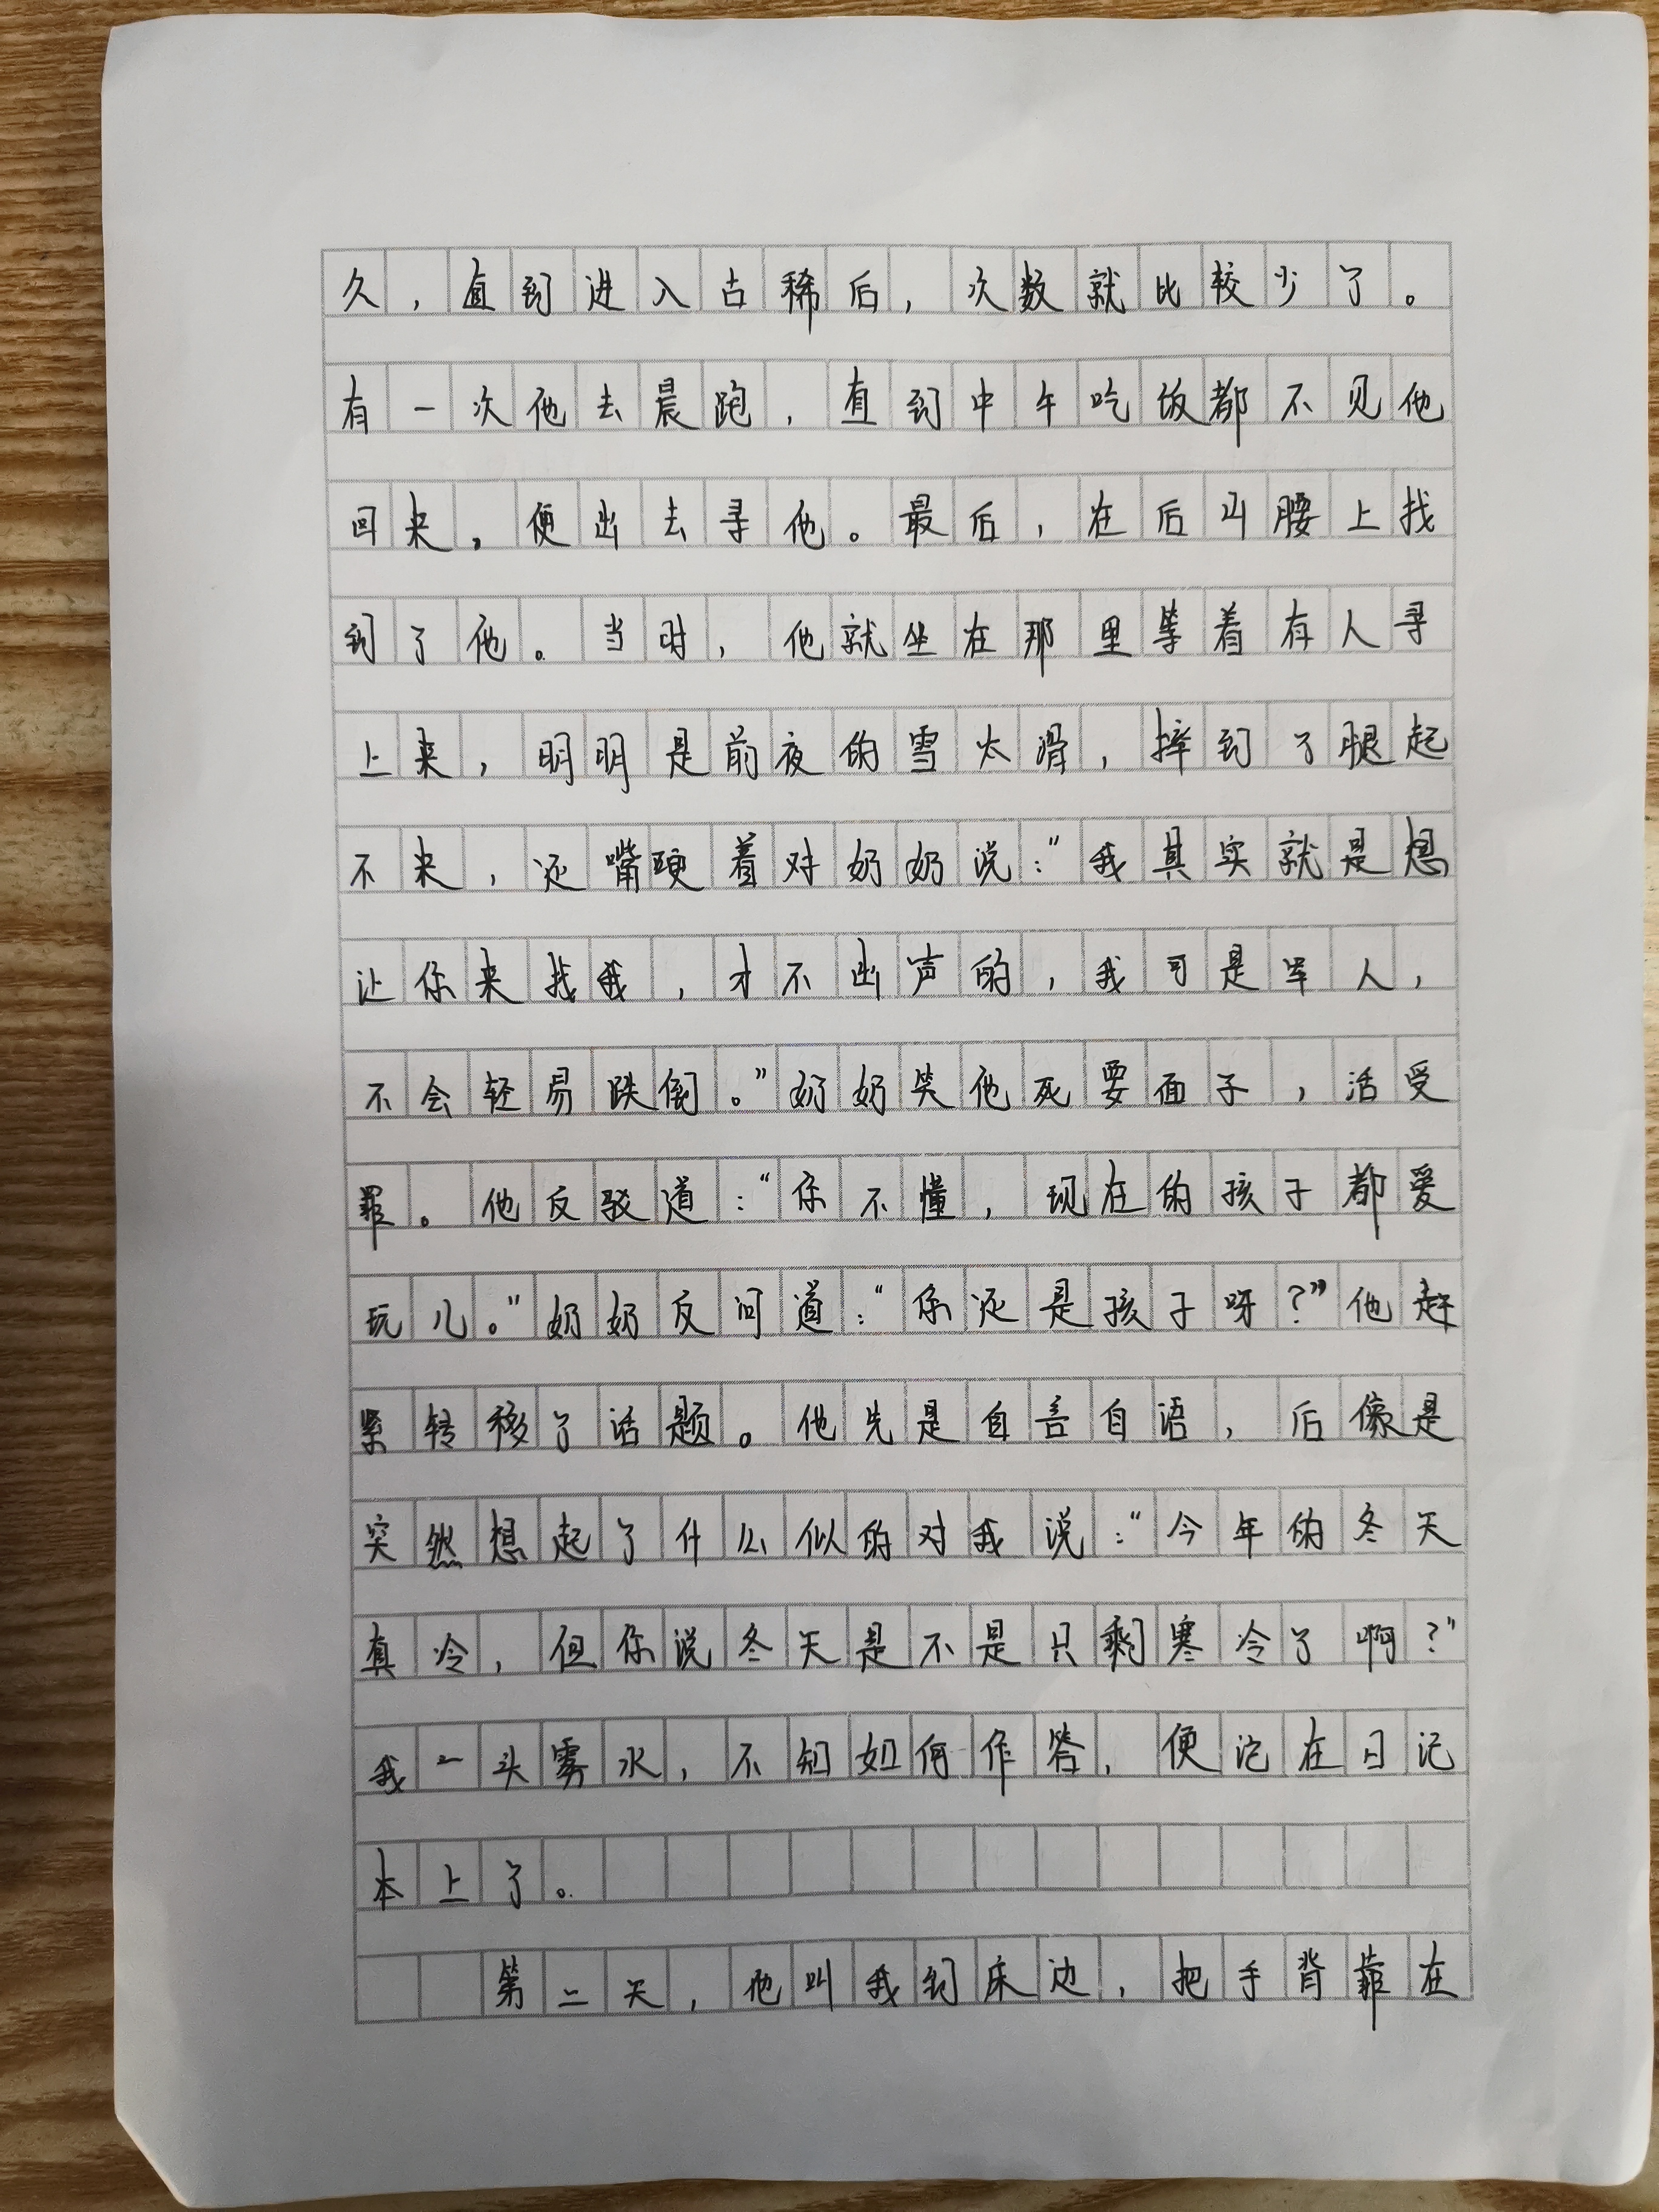 久，直到进入古稀后，次数就比较少了。
有一次他去晨跑，直到中午吃饭都不见他
回来。便出去寻他。最后，在后山腰上找
到了他。当时，他就坐在那里等着有人寻
上来，明明是前夜的雪太滑，摔到了腿起
不来，还嘴硬着对奶奶说：“我其实就是想
让你来找我，才不出声的，我可是军人，
不会轻易跌倒。”奶奶笑他死要面子，活受
罪。他反驳道：“你不懂，现在的孩子都爱
玩儿。”奶奶反问道：“你还是孩子呀？”他赶
紧转移了话题。他先是自言自语，后像是
突然想起了什么似的对我说：“今年的冬天
真冷，但你说冬天是不是只剩寒冷了啊？”
我一头雾水，不知如何作答，便记在日记
本上了。
第二天，他叫我到床边，把手背靠在